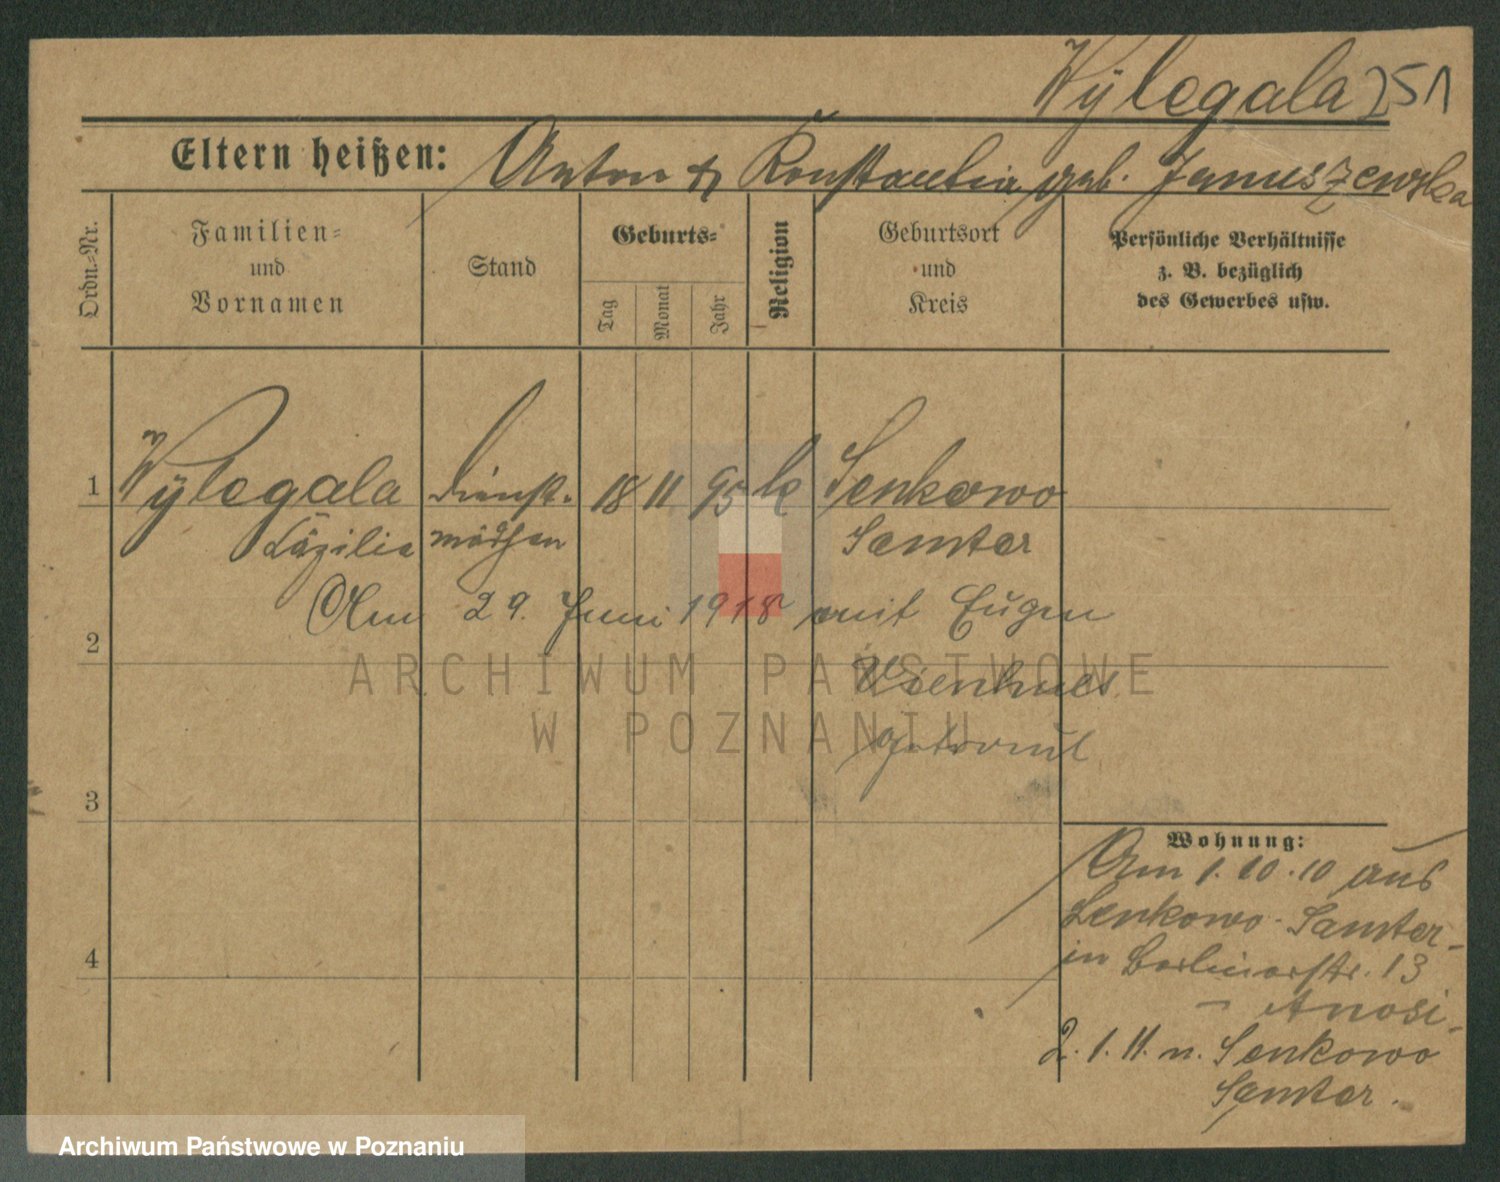 Wylegala 251
Eltern heißen: Anton & Konstantia geb. Januszewska
Ordn.-Nr.
Familien-
und
Vornamen
Stand
Geburts-
Tag
Monat
Jahr
Religion
Geburtsort
und
Kreis
Persönliche Verhältnisse
z. B. bezüglich
des Gewerbes usw.
1 Wylegala Dienst- 18 11 95 k Senkowo
Cäzilie mädchen Samter
Am 29. Juni 1918 mit Eugen
2
Wienhues
getraut
3
Wohnung:
Am 1.10.10 aus
Senkowo-Samter-
4
in Berlinerstr. 13
- Anosi-
2.1.11. n. Senkowo
Samter.
ARCHIWUM PAŃSTWOWE
W POZNANIU
Archiwum Państwowe w Poznaniu